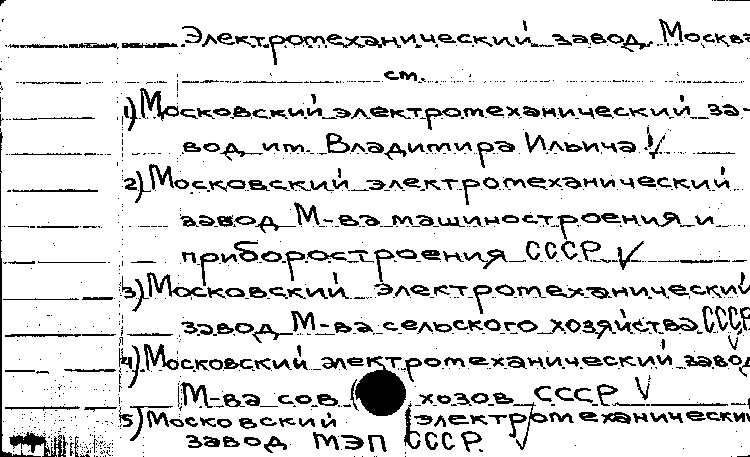 Электромеханический завод, Москва
см.
1) Московский электромеханический за-
вод им. Владимира Ильича! ✓
2) Московский электромеханический
завод М-ва машиностроения и
приборостроения СССР ✓
3) Московский электромеханический
завод М-ва сельского хозяйства СССР ✓
4) Московский электромеханический завод
М-ва сов хозов СССР ✓
5) Московский электромеханический
завод МЭП СССР. ✓